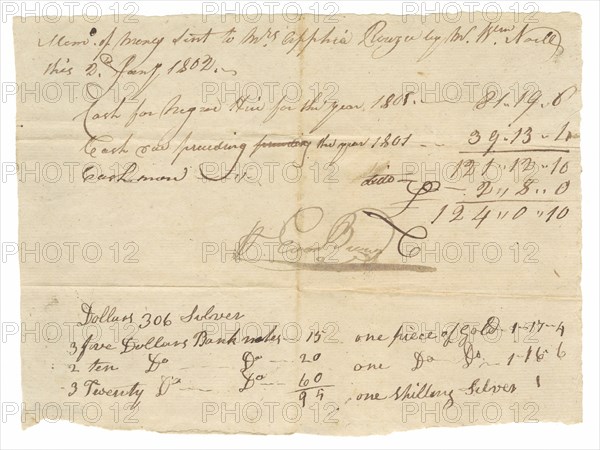 Mem. of Money Sent to Mrs. Apphia Rouzee by Mr. Wm. Noell
this 2d. Jany. 1802.
Cash for Negroe Hire for the year, 1801. — 81..19..6
Cash preceeding the year 1801 — 39..13..4
121..12..10
Cash more ditto — 2..8..0
124..0..10
Dollars 306 Silver
3 five Dollars Bank notes 15 one piece of Gold - 1-17-4
2 ten Do Do 20 one Do Do 1-16 6
3 Twenty Do Do 60 one shilling Silver 1
95
PHOTO 12